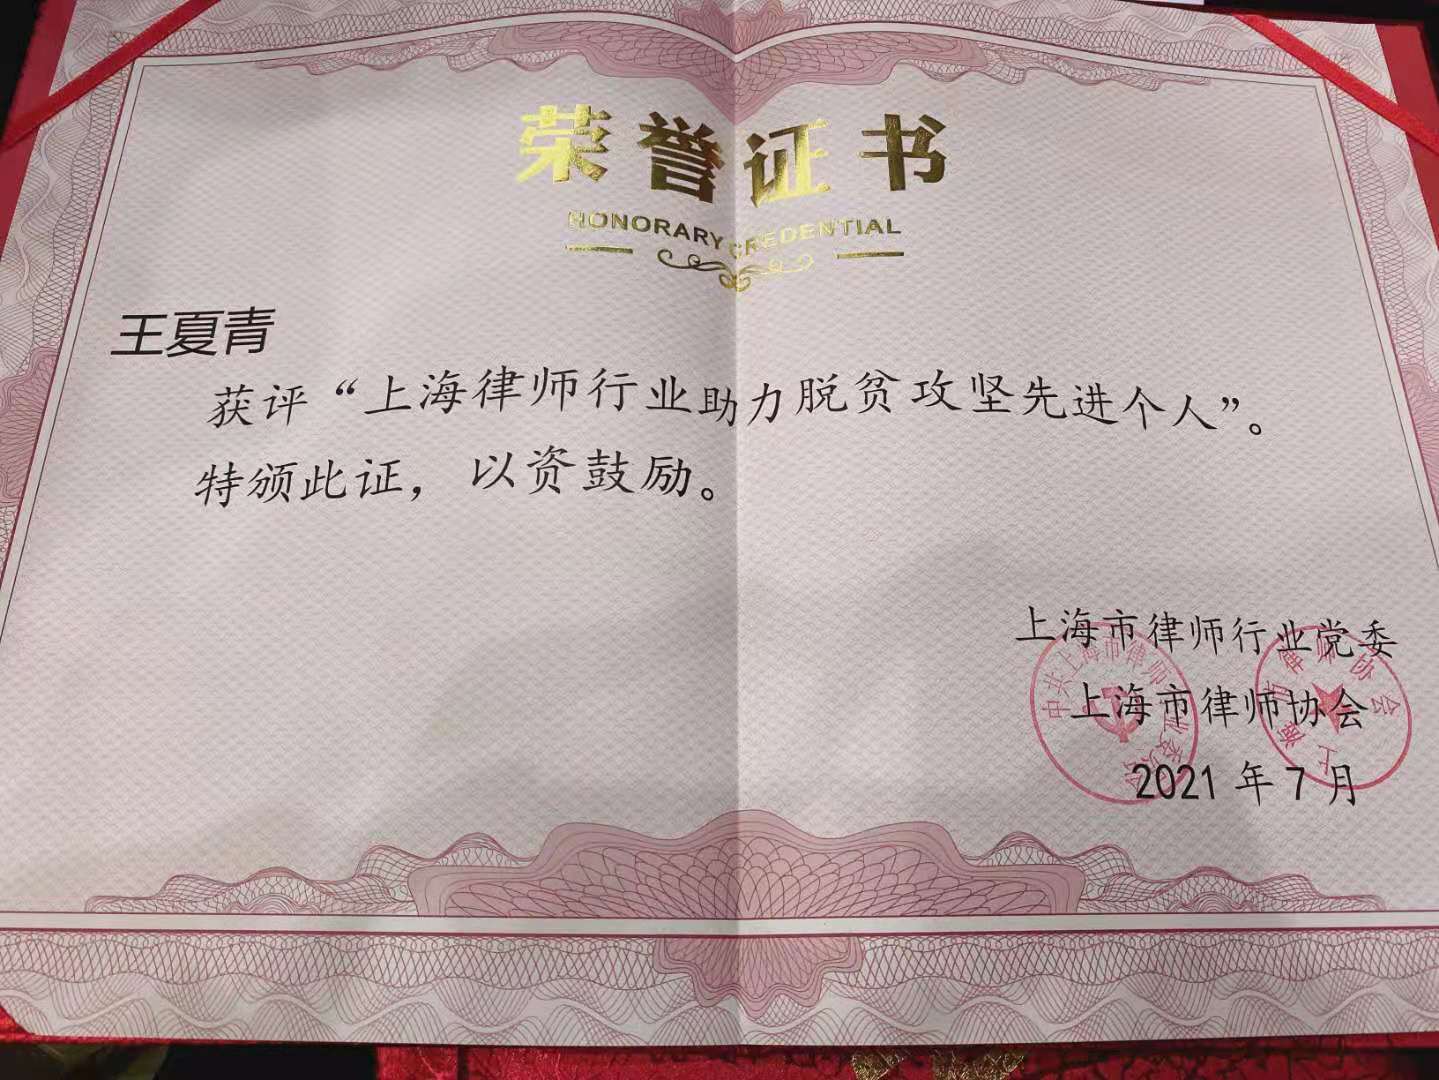 荣誉证书
HONORARY CREDENTIAL
王夏青
获评“上海律师行业助力脱贫攻坚先进个人”。
特颁此证，以资鼓励。
上海市律师行业党委
上海市律师协会
2021年7月
上海市律师协会